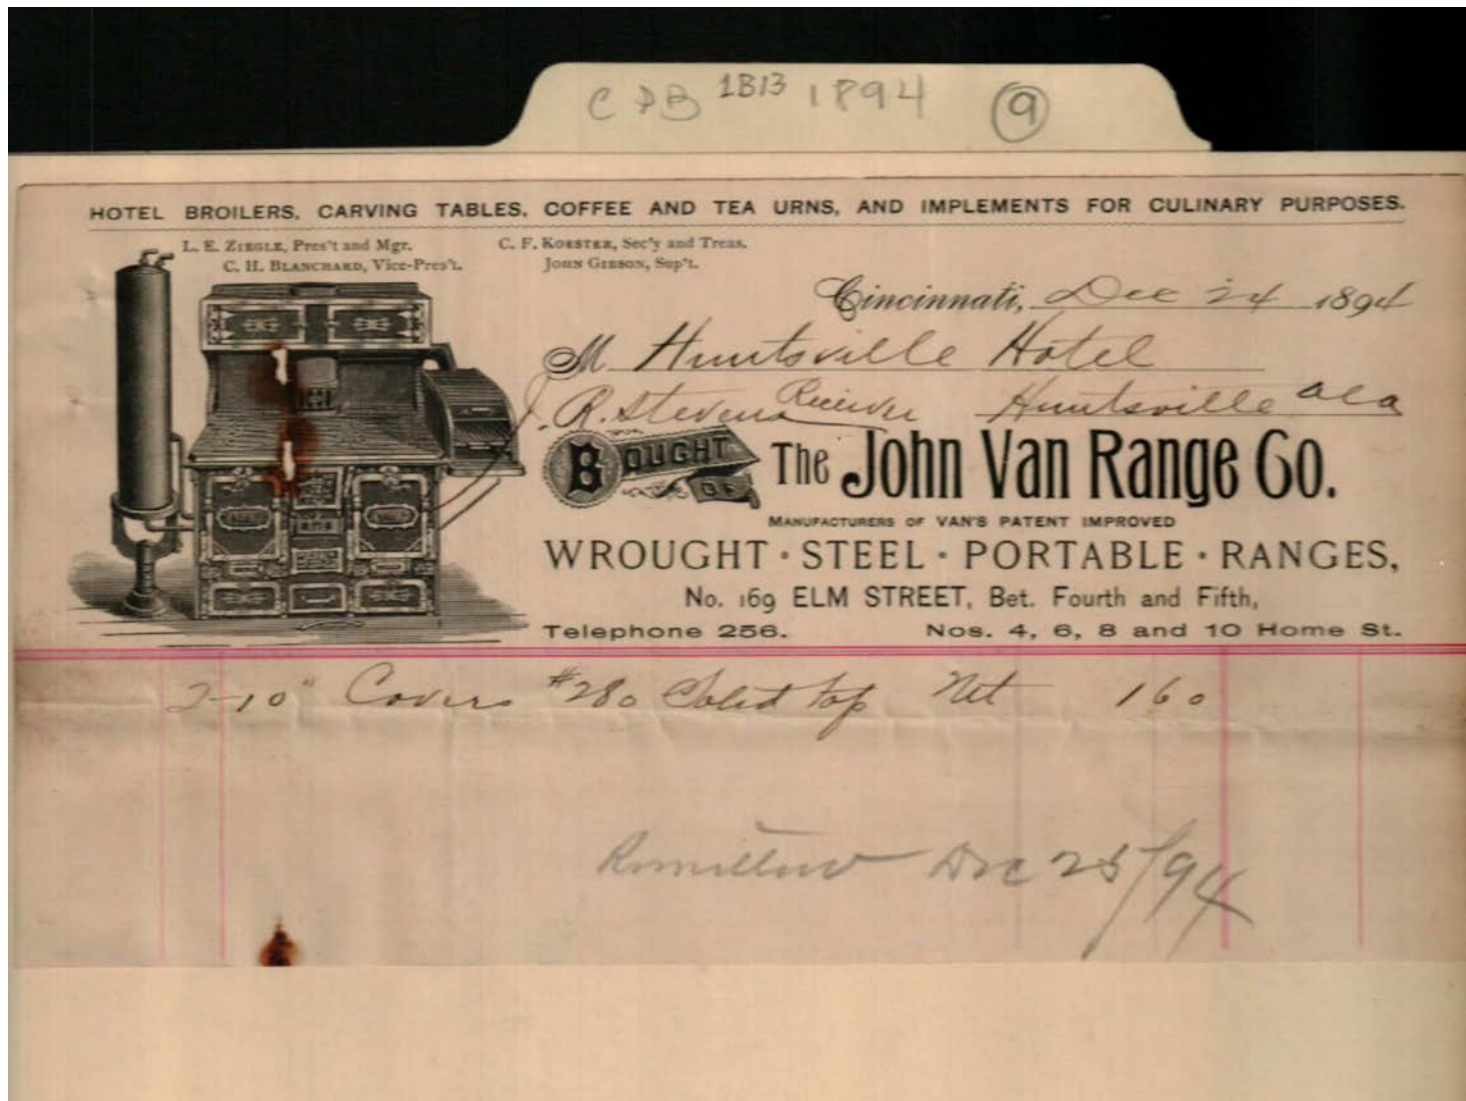 C D B 1B13 1894 9
HOTEL BROILERS, CARVING TABLES, COFFEE AND TEA URNS, AND IMPLEMENTS FOR CULINARY PURPOSES.
L. E. ZIEGLE, Pres't and Mgr. C. F. KOESTER, Sec'y and Treas.
C. H. BLANCHARD, Vice-Pres't. JOHN GIBSON, Sup't.
Cincinnati, Dec 24 1894
M Huntsville Hotel
J. R. Stevens Receiver Huntsville Ala
BOUGHT OF The John Van Range Co.
MANUFACTURERS OF VAN'S PATENT IMPROVED
WROUGHT · STEEL · PORTABLE · RANGES,
No. 169 ELM STREET, Bet. Fourth and Fifth,
Telephone 256. Nos. 4, 6, 8 and 10 Home St.
2-10" Covers #280 Solid top Net 160
Remitted Dec 28/94